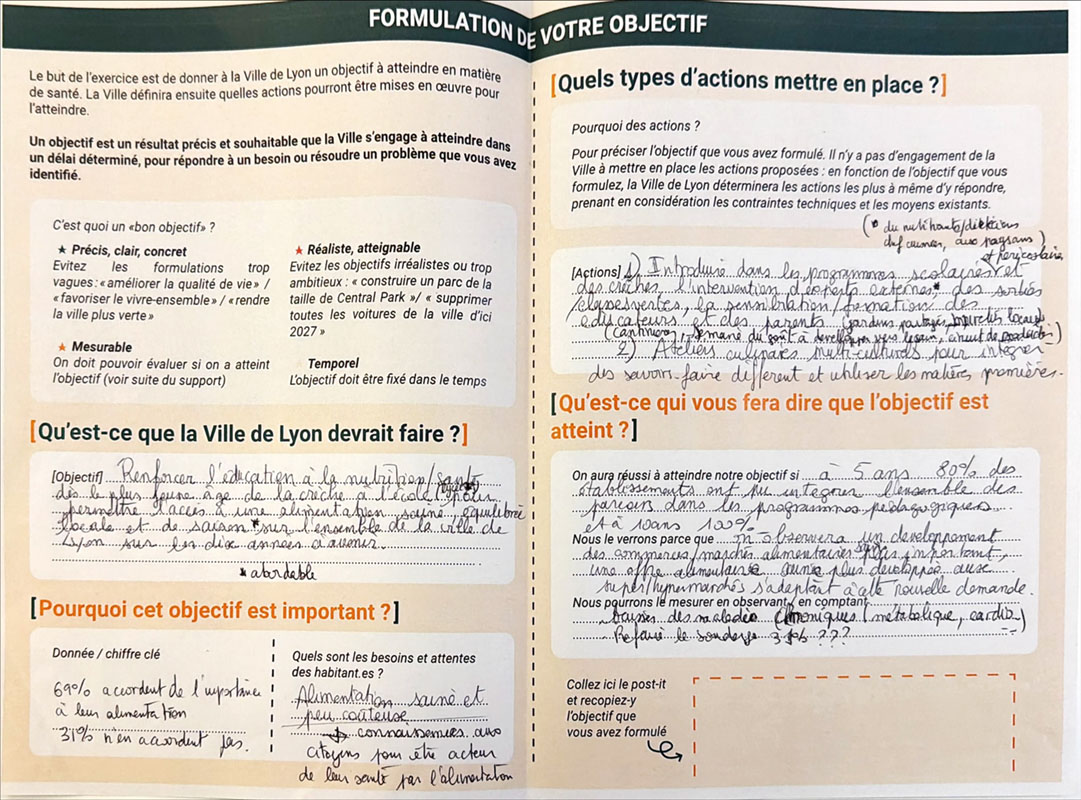 FORMULATION DE VOTRE OBJECTIF
Le but de l'exercice est de donner à la Ville de Lyon un objectif à atteindre en matière
de santé. La Ville définira ensuite quelles actions pourront être mises en œuvre pour
l'atteindre.
Un objectif est un résultat précis et souhaitable que la Ville s'engage à atteindre dans
un délai déterminé, pour répondre à un besoin ou résoudre un problème que vous avez
identifié.
C'est quoi un «bon objectif» ?
★ Précis, clair, concret
Evitez les formulations trop
vagues : « améliorer la qualité de vie » /
« favoriser le vivre-ensemble » / « rendre
la ville plus verte »
★ Réaliste, atteignable
Evitez les objectifs irréalistes ou trop
ambitieux : « construire un parc de la
taille de Central Park »/ « supprimer
toutes les voitures de la ville d'ici
2027 »
★ Mesurable
On doit pouvoir évaluer si on a atteint
l'objectif (voir suite du support)
Temporel
L'objectif doit être fixé dans le temps
[Qu'est-ce que la Ville de Lyon devrait faire ?]
[Objectif] Renforcer l'éducation à la nutrition/santé
dès le plus jeune âge de la crèche à l'école pour
permettre l'accès à une alimentation saine équilibrée
locale et de saison * sur l'ensemble de la ville de
Lyon sur les dix années à avenir.
* abordable
[Pourquoi cet objectif est important ?]
Donnée / chiffre clé
69% accordent de l'importance
à leur alimentation
31% n'en accordent pas.
Quels sont les besoins et attentes
des habitant.es ?
Alimentation saine et
peu coûteuse
→ connaissances aux
citoyens pour être acteur
de leur santé par l'alimentation
[Quels types d'actions mettre en place ?]
Pourquoi des actions ?
Pour préciser l'objectif que vous avez formulé. Il n'y a pas d'engagement de la
Ville à mettre en place les actions proposées : en fonction de l'objectif que vous
formulez, la Ville de Lyon déterminera les actions les plus à même d'y répondre,
prenant en considération les contraintes techniques et les moyens existants.
(* du nutritionniste/diététiciens
aux paysans)
et périscolaires
[Actions] 1) Introduire dans les programmes scolaires et
des crèches, l'intervention d'experts externes*, des sorties
/classes vertes, la sensibilisation/formations des
éducateurs et des parents (jardins partagés, marchés locaux
(cantines, semaine du goût à développer vers besoin, circuit de production)
2) Ateliers culinaires multi-culturels pour intégrer
des savoir-faire différent et utiliser les matières premières.
[Qu'est-ce qui vous fera dire que l'objectif est
atteint ?]
On aura réussi à atteindre notre objectif si à 5 ans 80% des
établissements ont pu intégrer l'ensemble des
parcours dans les programmes pédagogiques
et à 10 ans 100%
Nous le verrons parce que on observera un développement
des commerces/marchés alimentaires plus important,
une offre alimentaire saine plus développée avec
super/hypermarchés s'adaptant à cette nouvelle demande.
Nous pourrons le mesurer en observant / en comptant
baisses des maladies chroniques (métabolique, cardio)
Refaire le sondage 31% ???
Collez ici le post-it
et recopiez-y
l'objectif que
vous avez formulé